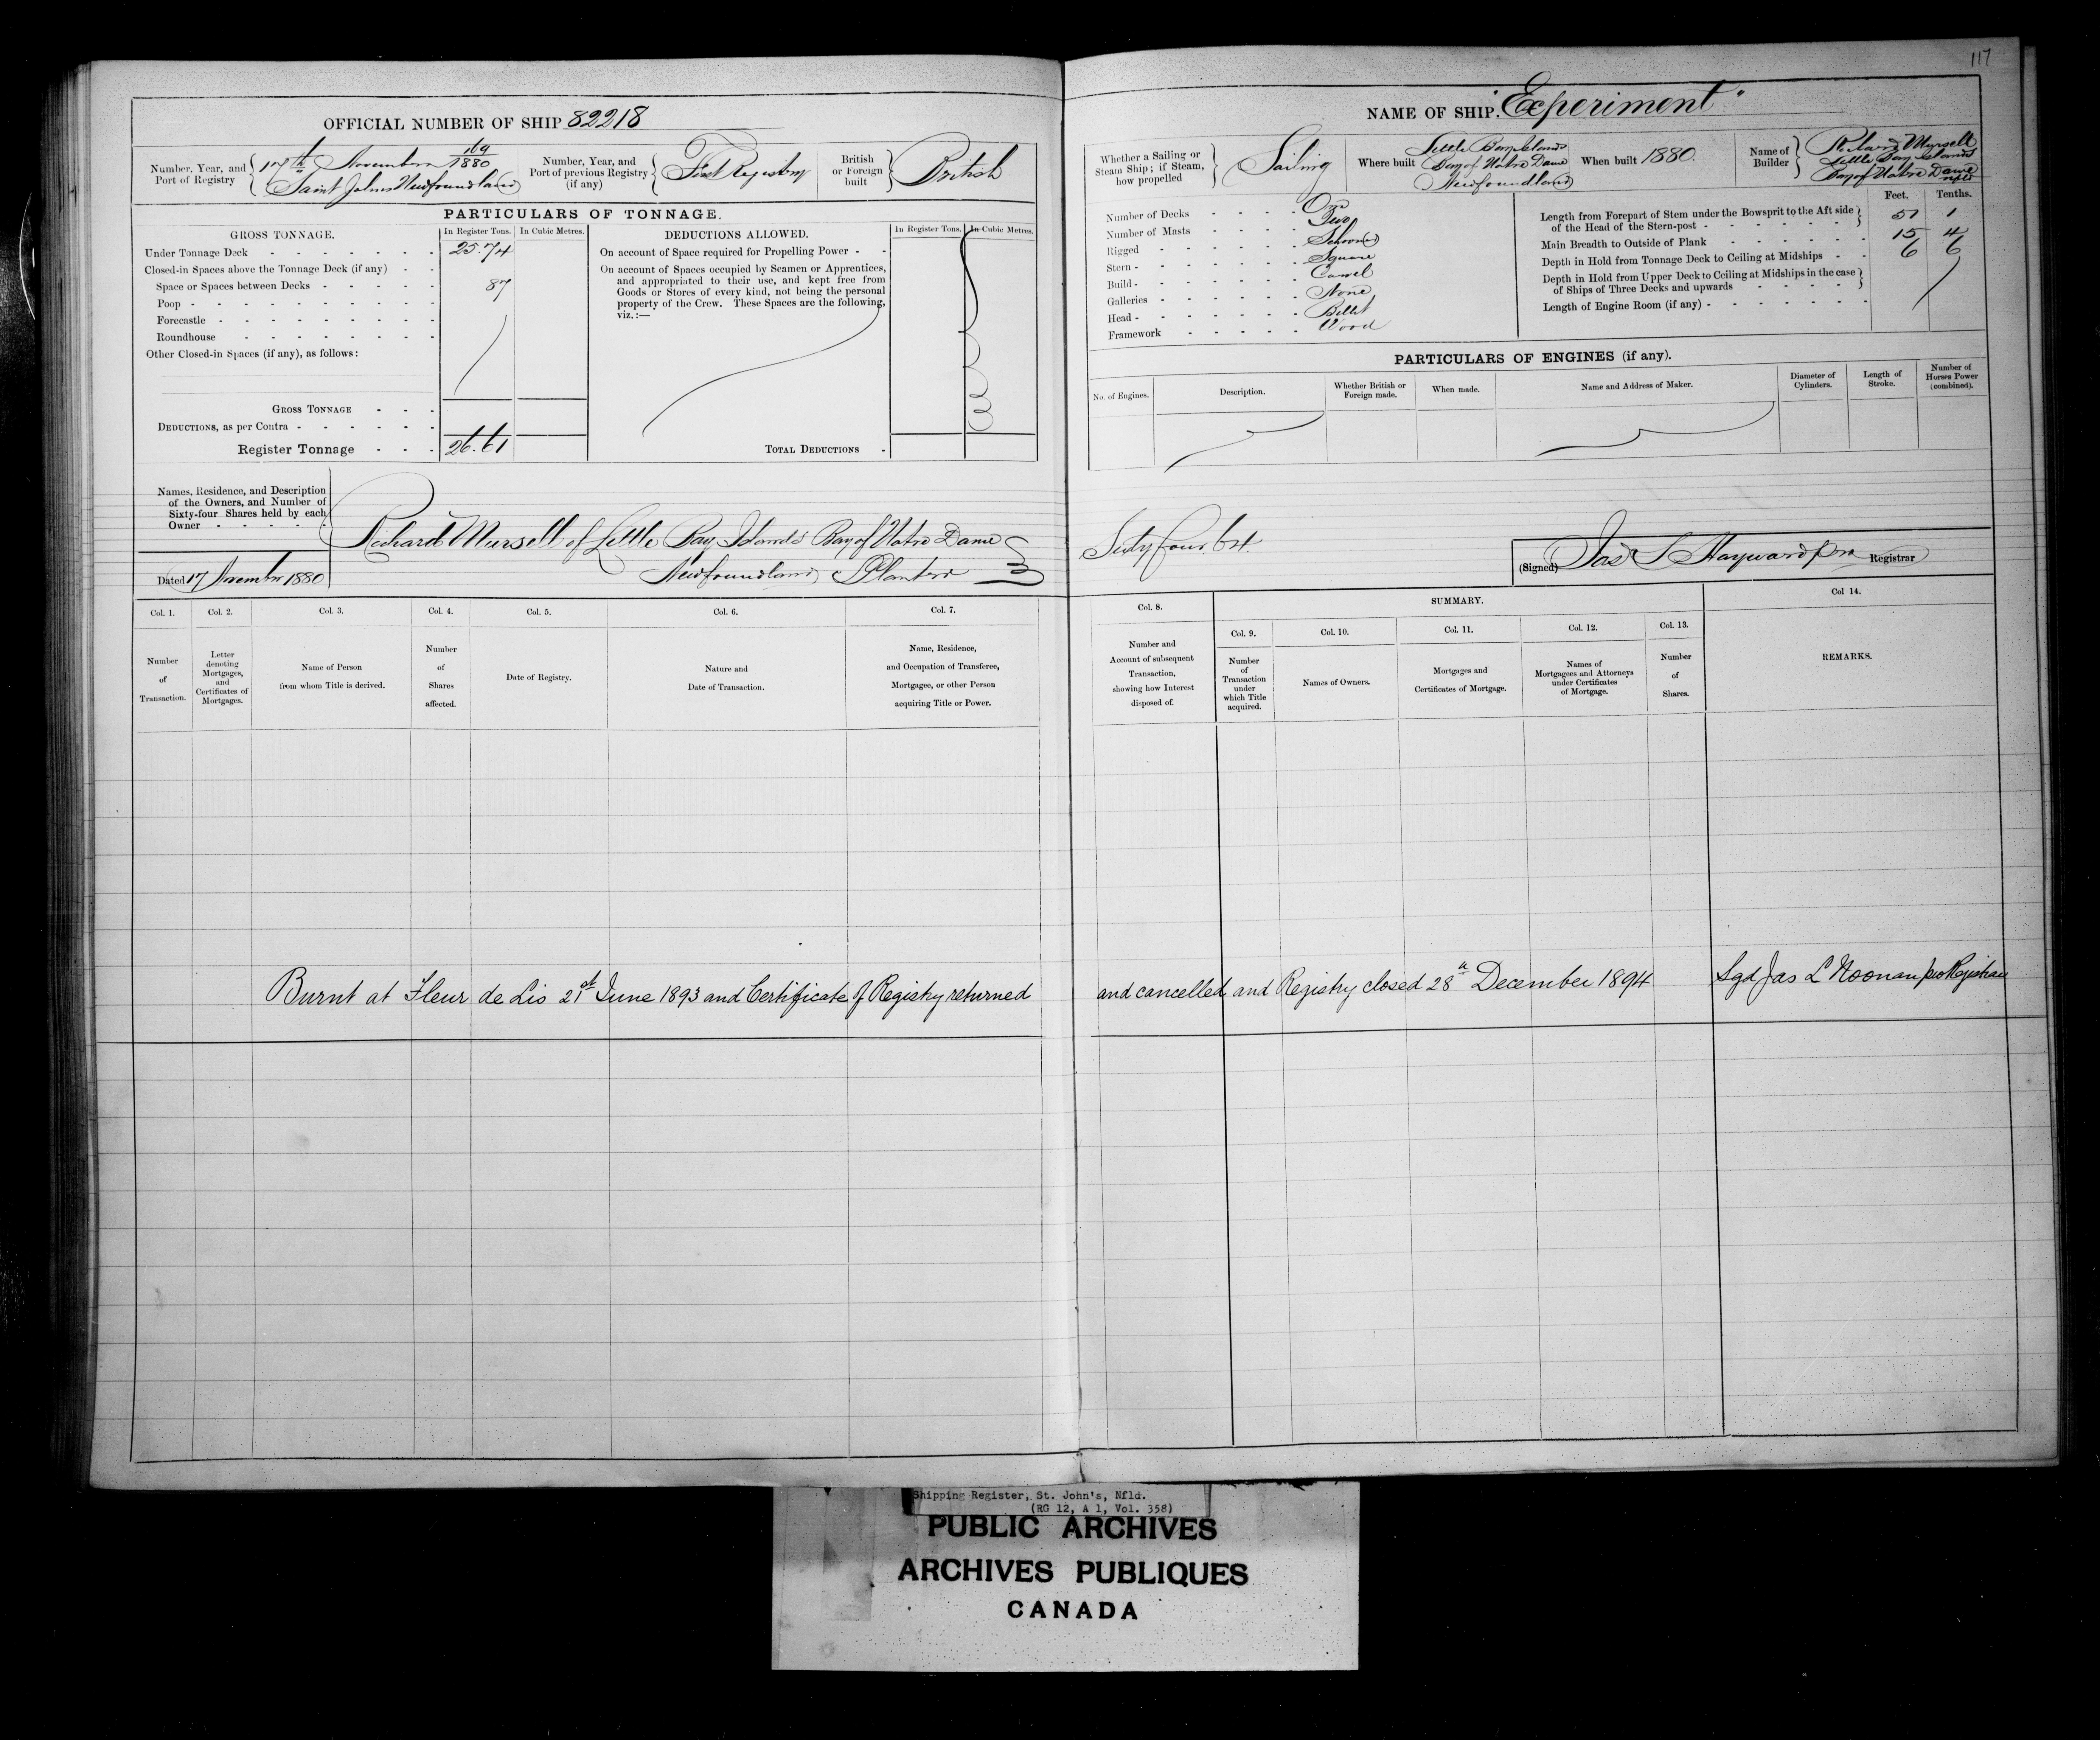 117
OFFICIAL NUMBER OF SHIP 82218
Number, Year, and Port of Registry
17th November 169/1880
Saint Johns Newfoundland
Number, Year, and Port of previous Registry (if any)
First Registry
British or Foreign built
British
PARTICULARS OF TONNAGE.
GROSS TONNAGE.
In Register Tons.
In Cubic Metres.
Under Tonnage Deck 25.74
Closed-in Spaces above the Tonnage Deck (if any)
Space or Spaces between Decks 87
Poop
Forecastle
Roundhouse
Other Closed-in Spaces (if any), as follows:
GROSS TONNAGE
DEDUCTIONS, as per Contra
Register Tonnage 26.61
DEDUCTIONS ALLOWED.
In Register Tons.
In Cubic Metres.
On account of Space required for Propelling Power
On account of Spaces occupied by Seamen or Apprentices,
and appropriated to their use, and kept free from
Goods or Stores of every kind, not being the personal
property of the Crew. These Spaces are the following,
viz.:—
TOTAL DEDUCTIONS
Names, Residence, and Description
of the Owners, and Number of
Sixty-four Shares held by each
Owner
Richard Mursell of Little Bay Islands Bay of Notre Dame
Newfoundland Planter
Dated 17 November 1880
NAME OF SHIP. "Experiment"
Whether a Sailing or Steam Ship; if Steam, how propelled
Sailing
Where built
Little Bay Islands
Bay of Notre Dame
Newfoundland
When built 1880.
Name of Builder
Richard Mursell
Little Bay Islands
Bay of Notre Dame
Nfld
Number of Decks One
Number of Masts Two
Rigged Schooner
Stern Square
Build Carvel
Galleries None
Head Billet
Framework Wood
Feet. Tenths.
Length from Forepart of Stem under the Bowsprit to the Aft side
of the Head of the Stern-post 51 1
Main Breadth to Outside of Plank 15 4
Depth in Hold from Tonnage Deck to Ceiling at Midships 6 6
Depth in Hold from Upper Deck to Ceiling at Midships in the case
of Ships of Three Decks and upwards
Length of Engine Room (if any)
PARTICULARS OF ENGINES (if any).
No. of Engines.
Description.
Whether British or Foreign made.
When made.
Name and Address of Maker.
Diameter of Cylinders.
Length of Stroke.
Number of Horses Power (combined).
Sixty four 64.
(Signed) Jas S Hayward pro Registrar
Col. 1. Col. 2. Col. 3. Col. 4. Col. 5. Col. 6. Col. 7.
Number of Transaction.
Letter denoting Mortgages, and Certificates of Mortgages.
Name of Person from whom Title is derived.
Number of Shares affected.
Date of Registry.
Nature and Date of Transaction.
Name, Residence, and Occupation of Transferee, Mortgagee, or other Person acquiring Title or Power.
Col. 8.
SUMMARY.
Col 14.
Col. 9. Col. 10. Col. 11. Col. 12. Col. 13.
Number and Account of subsequent Transaction, showing how Interest disposed of.
Number of Transaction under which Title acquired.
Names of Owners.
Mortgages and Certificates of Mortgage.
Names of Mortgagees and Attorneys under Certificates of Mortgage.
Number of Shares.
REMARKS.
Burnt at Fleur de Lis 21st June 1893 and Certificate of Registry returned
and cancelled and Registry closed 28th December 1894
Sgd Jas L Noonan pro Registrar
Shipping Register, St. John's, Nfld.
(RG 12, A 1, Vol. 358)
PUBLIC ARCHIVES
ARCHIVES PUBLIQUES
CANADA